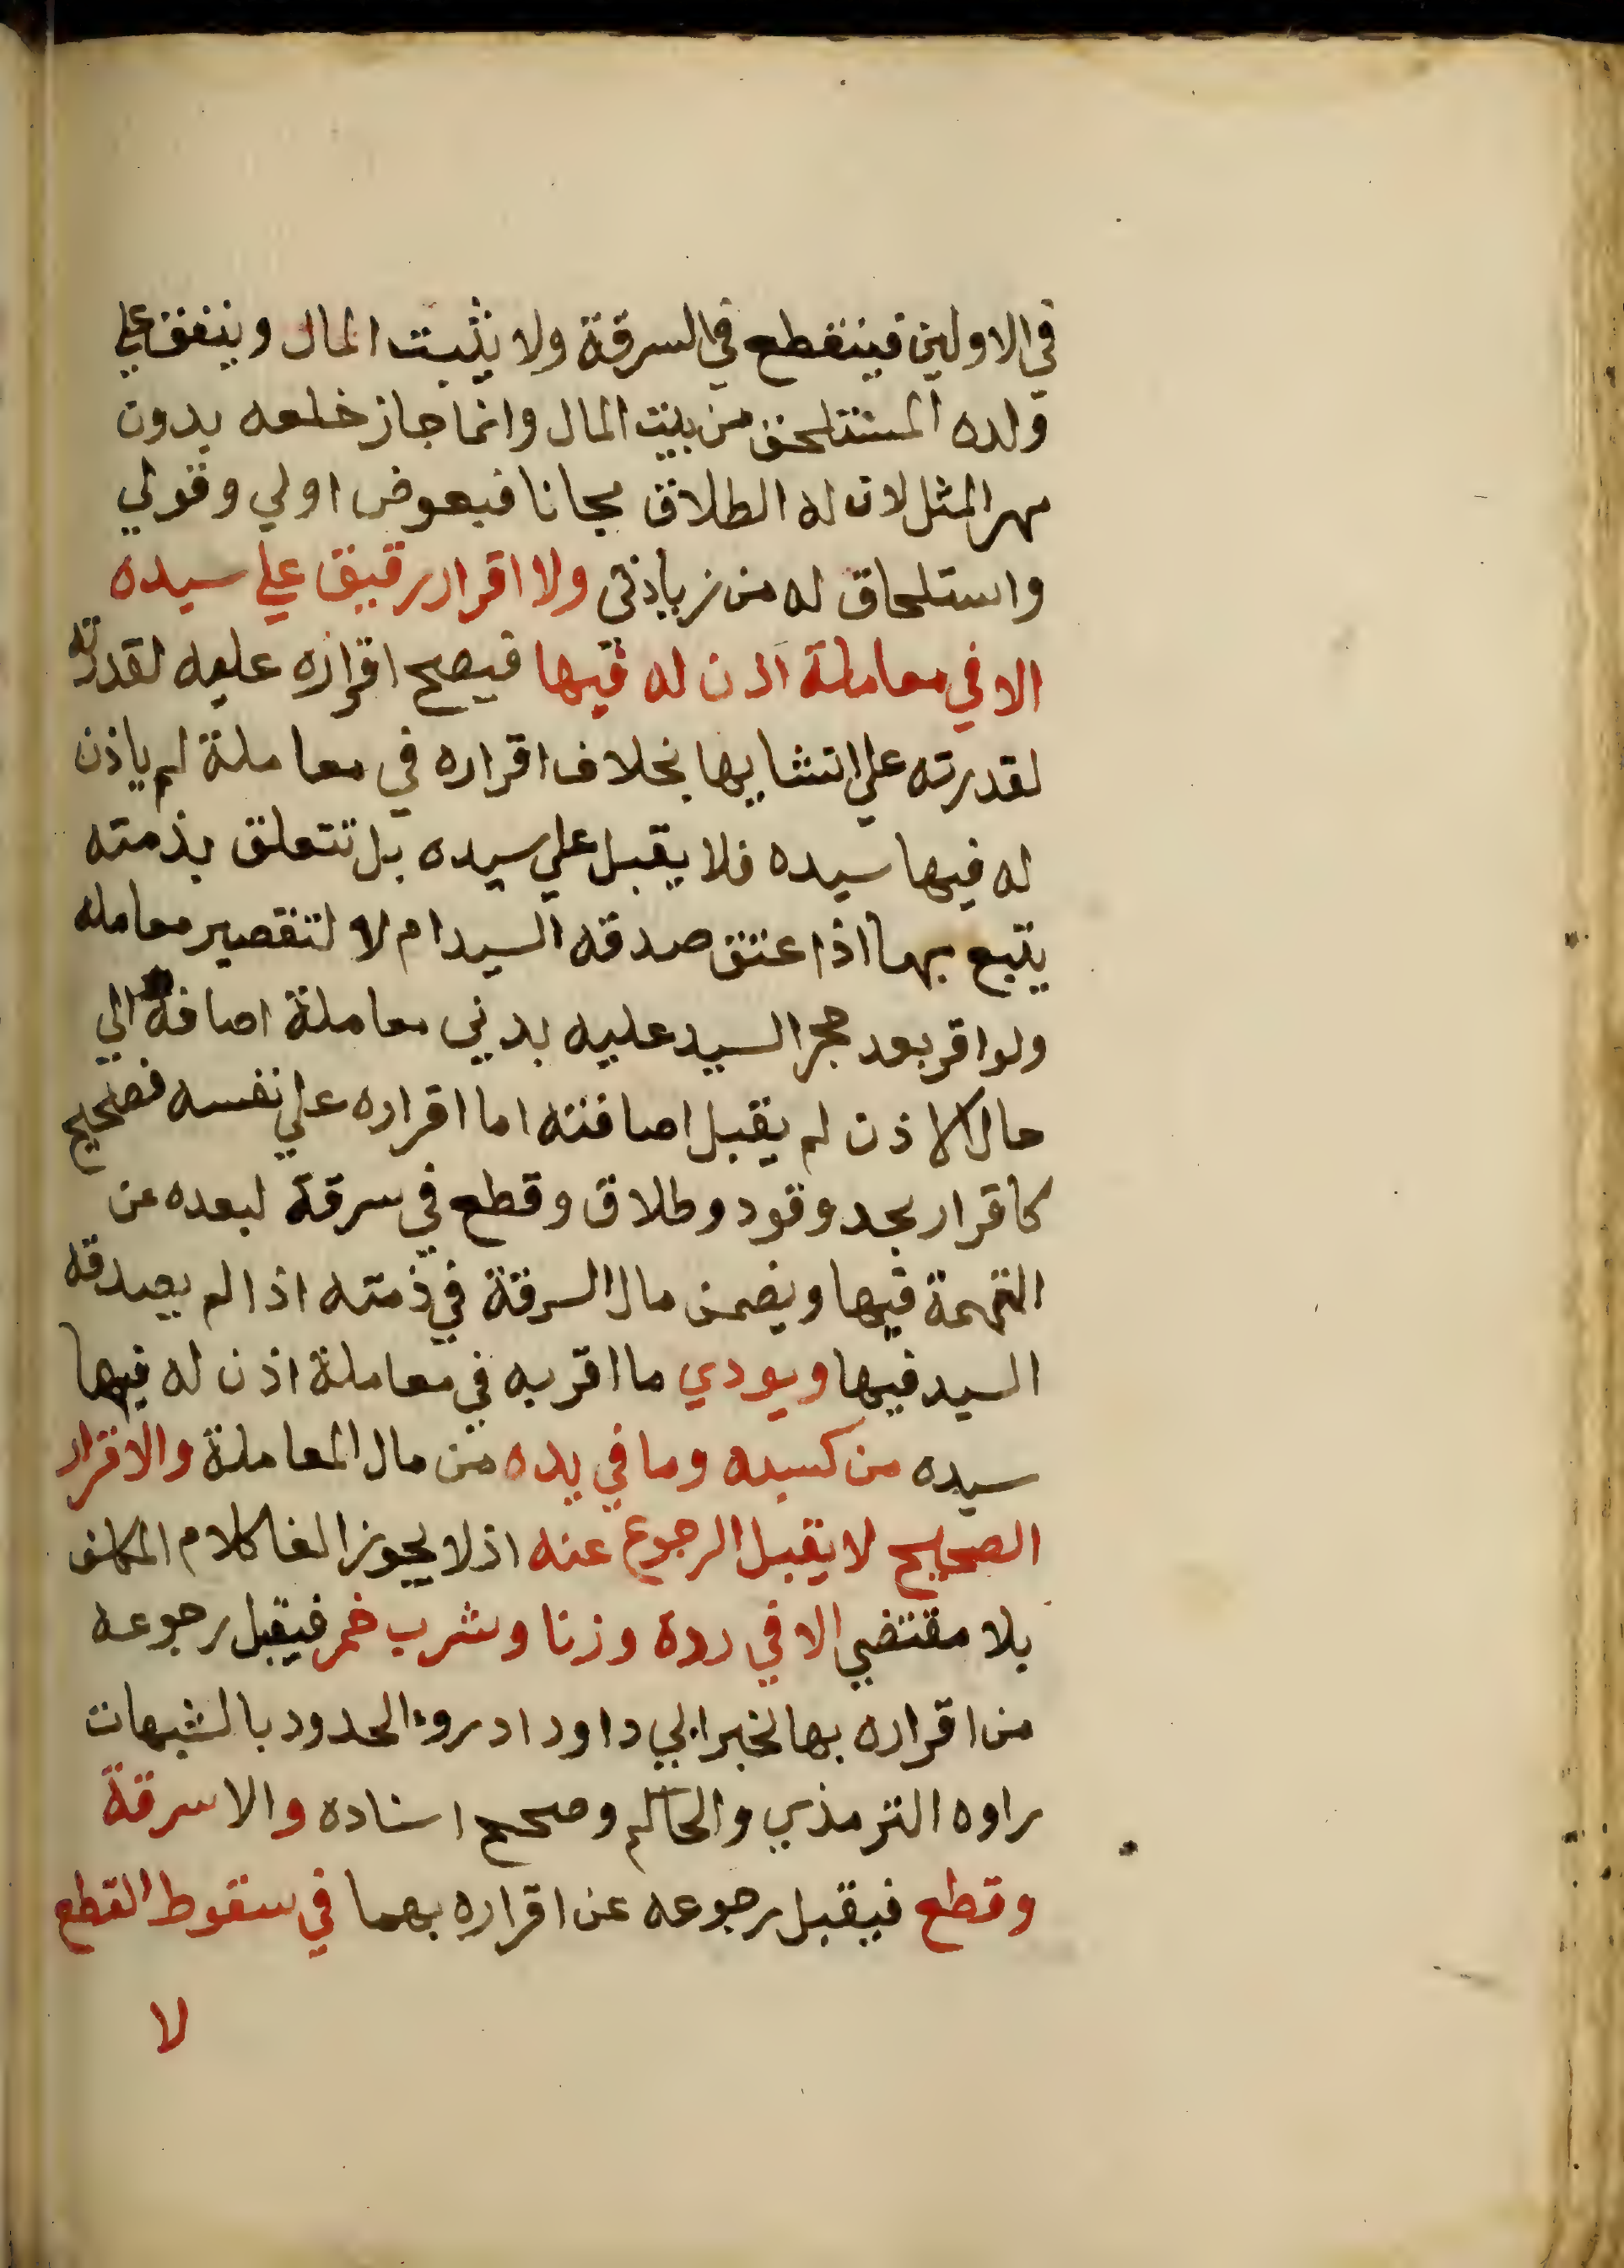 في الاولين فينقطع في السرقة ولا يثبت المال وينفق علي
ولده المستلحق من بيت المال وانما جاز خلعه بدون
مهر المثل لان له الطلاق مجانا فبعوض اولي وقولي
واستلحاق له من زيادتي ولا اقرار رقيق علي سيده
الا في معاملة اذن له فيها فيصح اقراره عليه لقدرته
لقدرته علي انشايها بخلاف اقراره في معاملة لم ياذن
له فيها سيده فلا يقبل علي سيده بل تتعلق بذمته
يتبع بها اذا عتق صدقه السيد ام لا لتقصير معامله
ولو اقر بعد حجر السيد عليه بدين معاملة اضافة الي
حال الاذن لم يقبل اضافته اما اقراره علي نفسه فصحيح
كاقرار بحد وقود وطلاق وقطع في سرقة لبعده عن
التهمة فيها ويضمن مال السرقة في ذمته اذا لم يصدقه
السيد فيها ويودي ما اقر به في معاملة اذن له فيها
سيده من كسبه وما في يده من مال المعاملة والاقرار
الصحيح لا يقبل الرجوع عنه اذ لا يجوز الغا كلام المكلف
بلا مقتضي الا في ردة وزنا وشرب خمر فيقبل رجوعه
من اقراره بها لخبر ابي داود ادروء الحدود بالشبهات
رواه الترمذي والحاكم وصحح اسناده والا سرقة
وقطع فيقبل رجوعه عن اقراره بهما في سقوط القطع
لا